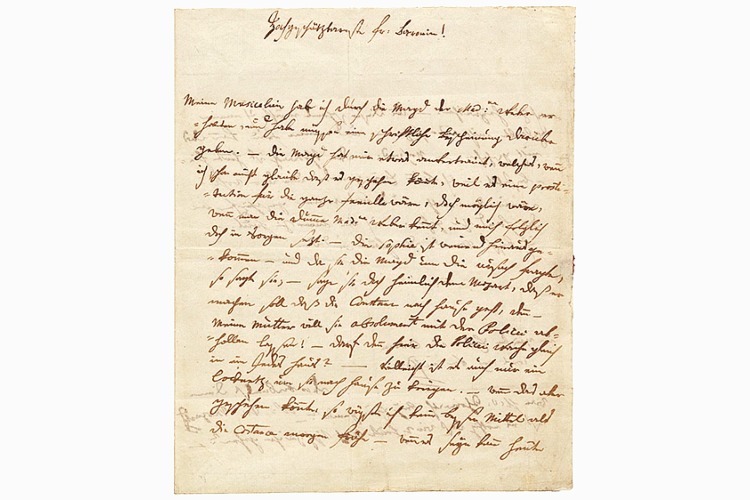 Hochgeschätzteste fr: Baronin!
Meine Musicalien hab ich durch die Magd der Mad:me Weber er=
=halten, und habe müssen eine schriftliche bescheinung darüber
geben. — die Magd hat mir etwas anvertrauet, welches, wenn
ich schon nicht glaube daß es geschehen könnte, weil es eine prosti=
=tution für die ganze familie wäre, doch möglich wäre,
wenn man die dumme Mad:me Weber kennt, und mich folglich
doch in Sorgen setzt. — die Sophie ist weinend hinausge=
=kommen — und da sie die Magd um die ursach fragte,
so sagte sie, — sage sie doch heimlich dem Mozart, daß er
machen soll daß die Constanze nach hause geht, denn —
Meine Mutter will sie absolument mit der Policei ab=
=hollen lassen! — darf denn hier die Policei Wache gleich
in ein Jedes haus? — vielleicht ist es auch nur ein
locknetz, um sie nach hause zu kriegen. — wenn das aber
geschehen könnte, so wüsste ich kein besser Mittel als
die Constanze morgen frühe — wenns seyn kann heute